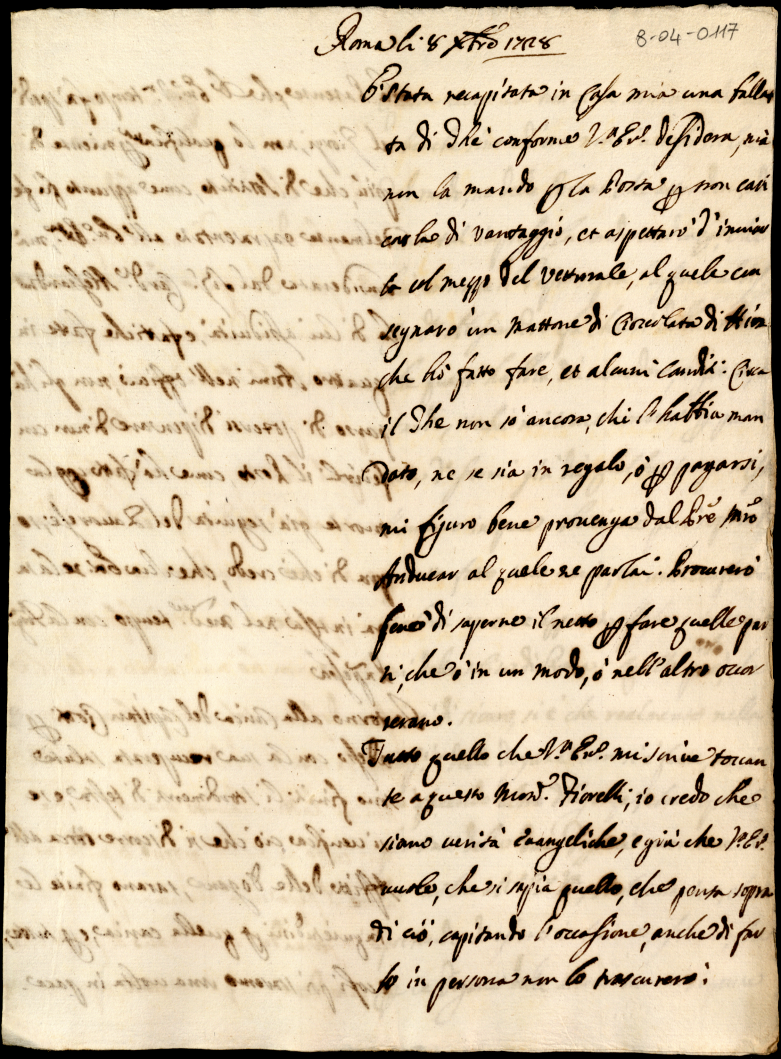 Roma li 8 Xbrē 1728
8-04-0117
E' stata recapitata in Casa mia una falla
ta di Thè conforme V.ra Em.za desidera, mà
non la mando p la Posta p non cari
carla di vantaggio, et aspettarò d'inviar
la col mezzo del Vetturale, al quale con
segnarò un mattone di Cioccolata di
che hò fatto fare, et alcuni Canditi. Circa
il Thè non sò ancora, chi l'habbia man
dato, ne se sia in regalo, ò p pagarsi,
mi figuro bene provenga dal Prē Mrō
Anducar al quale ne parlai. Procurerò
però di saperne il netto p fare quelle par
ti, che ò in un modo, ò nell'altro occor
rerano.
Tutto quello che V.ra Em.za mi scrive toccan
te a questo Mons.r Fiorelli, io credo che
siano verità Evangeliche, e già che V.Em.
vuole, che si sapia quello, che pensa sopra
di ciò, capitando l'occasione, anche di far
lo in persona non lo trascurerò: